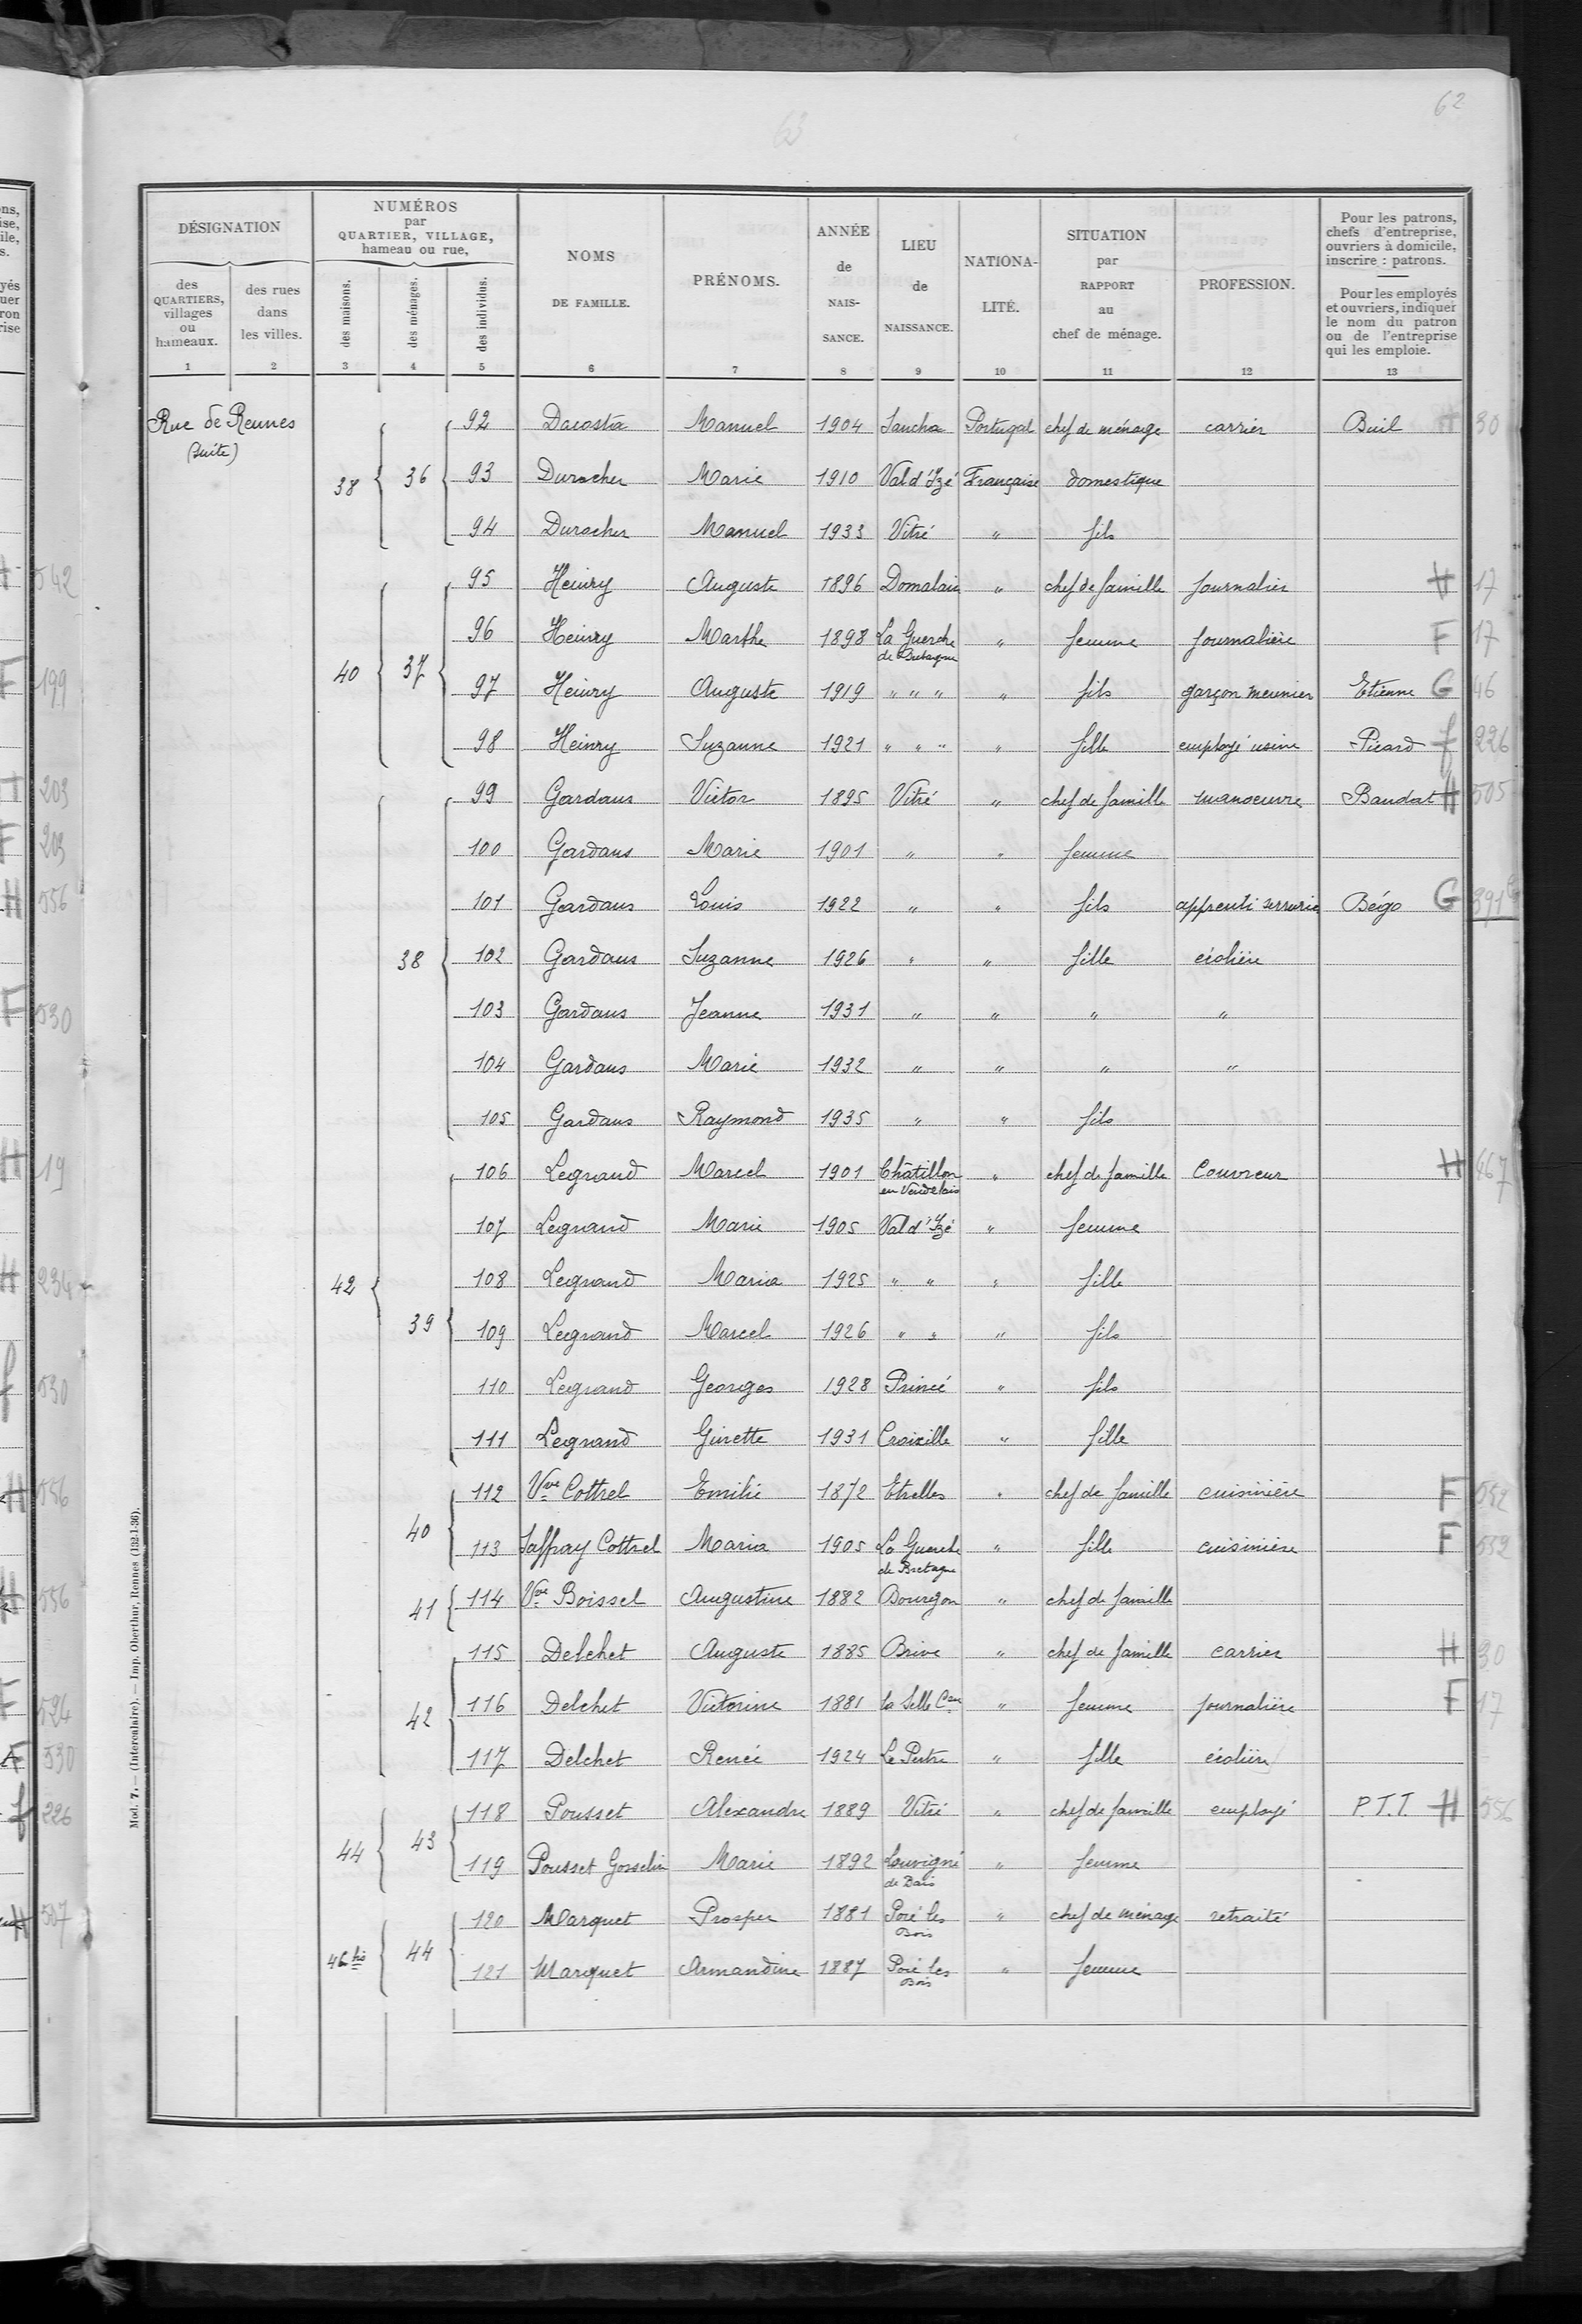 62
63
DÉSIGNATION
des QUARTIERS, villages ou hameaux.
des rues dans les villes.
NUMÉROS par QUARTIER, VILLAGE, hameau ou rue,
des maisons.
des ménages.
des individus.
NOMS DE FAMILLE.
PRÉNOMS.
ANNÉE de NAIS-SANCE.
LIEU de NAISSANCE.
NATIONA-LITÉ.
SITUATION par RAPPORT au chef de ménage.
PROFESSION.
Pour les patrons, chefs d'entreprise, ouvriers à domicile, inscrire : patrons.
Pour les employés et ouvriers, indiquer le nom du patron ou de l'entreprise qui les emploie.
1 2 3 4 5 6 7 8 9 10 11 12 13
Rue de Rennes
(suite)
38 36 92 Dacosta Manuel 1904 Sancha Portugal chef de ménage carrier Buil H 30
93 Durocher Marie 1910 Val d'Izé Française domestique
94 Durocher Manuel 1933 Vitré " fils
40 37 95 Heinry Auguste 1896 Domalain " chef de famille journalier H 17
96 Heinry Marthe 1898 La Guerche de Bretagne " femme journalière F 17
97 Heinry Auguste 1919 " " " " fils garçon meunier Etienne G 46
98 Heinry Suzanne 1921 " " " " fille employé usine Picard f 226
42 38 99 Gardaus Victor 1895 Vitré " chef de famille manoeuvre Baudat H 505
100 Gardaus Marie 1901 " " femme
101 Gardaus Louis 1922 " " fils apprenti serrurier Bégo G 391
102 Gardaus Suzanne 1926 " " fille écolière
103 Gardaus Jeanne 1931 " " " "
104 Gardaus Marie 1932 " " " "
105 Gardaus Raymond 1935 " " fils
39 106 Legrand Marcel 1901 Châtillon en Vendelais " chef de famille Couvreur H 467
107 Legrand Marie 1905 Val d'Izé " femme
108 Legrand Maria 1925 " " " fille
109 Legrand Marcel 1926 " " " fils
110 Legrand Georges 1928 Princé " fils
111 Legrand Ginette 1931 Croixille " fille
40 112 Vve Cottrel Emilie 1872 Etrelles " chef de famille cuisinière F 552
113 Saffray Cottrel Maria 1905 La Guerche de Bretagne " fille cuisinière F 552
41 114 Vve Boissel Augustine 1882 Bourgon " chef de famille
42 115 Delchet Auguste 1885 Brive " chef de famille carrier H 30
116 Delchet Victorine 1881 la Selle Cen " femme journalière F 17
117 Delchet Renée 1924 Le Pertre " fille écolière
44 43 118 Pousset Alexandre 1889 Vitré " chef de famille employé P.T.T. H 556
119 Pousset Gosselin Marie 1892 Louvigné de Bais " femme
46 bis 44 120 Marquet Prosper 1881 Pocé les Bois " chef de ménage retraité
121 Marquet Armandine 1887 Pocé les Bois " femme
Mod. 7. — (Intercalaire). — Imp. Oberthur, Rennes (132-1-36).